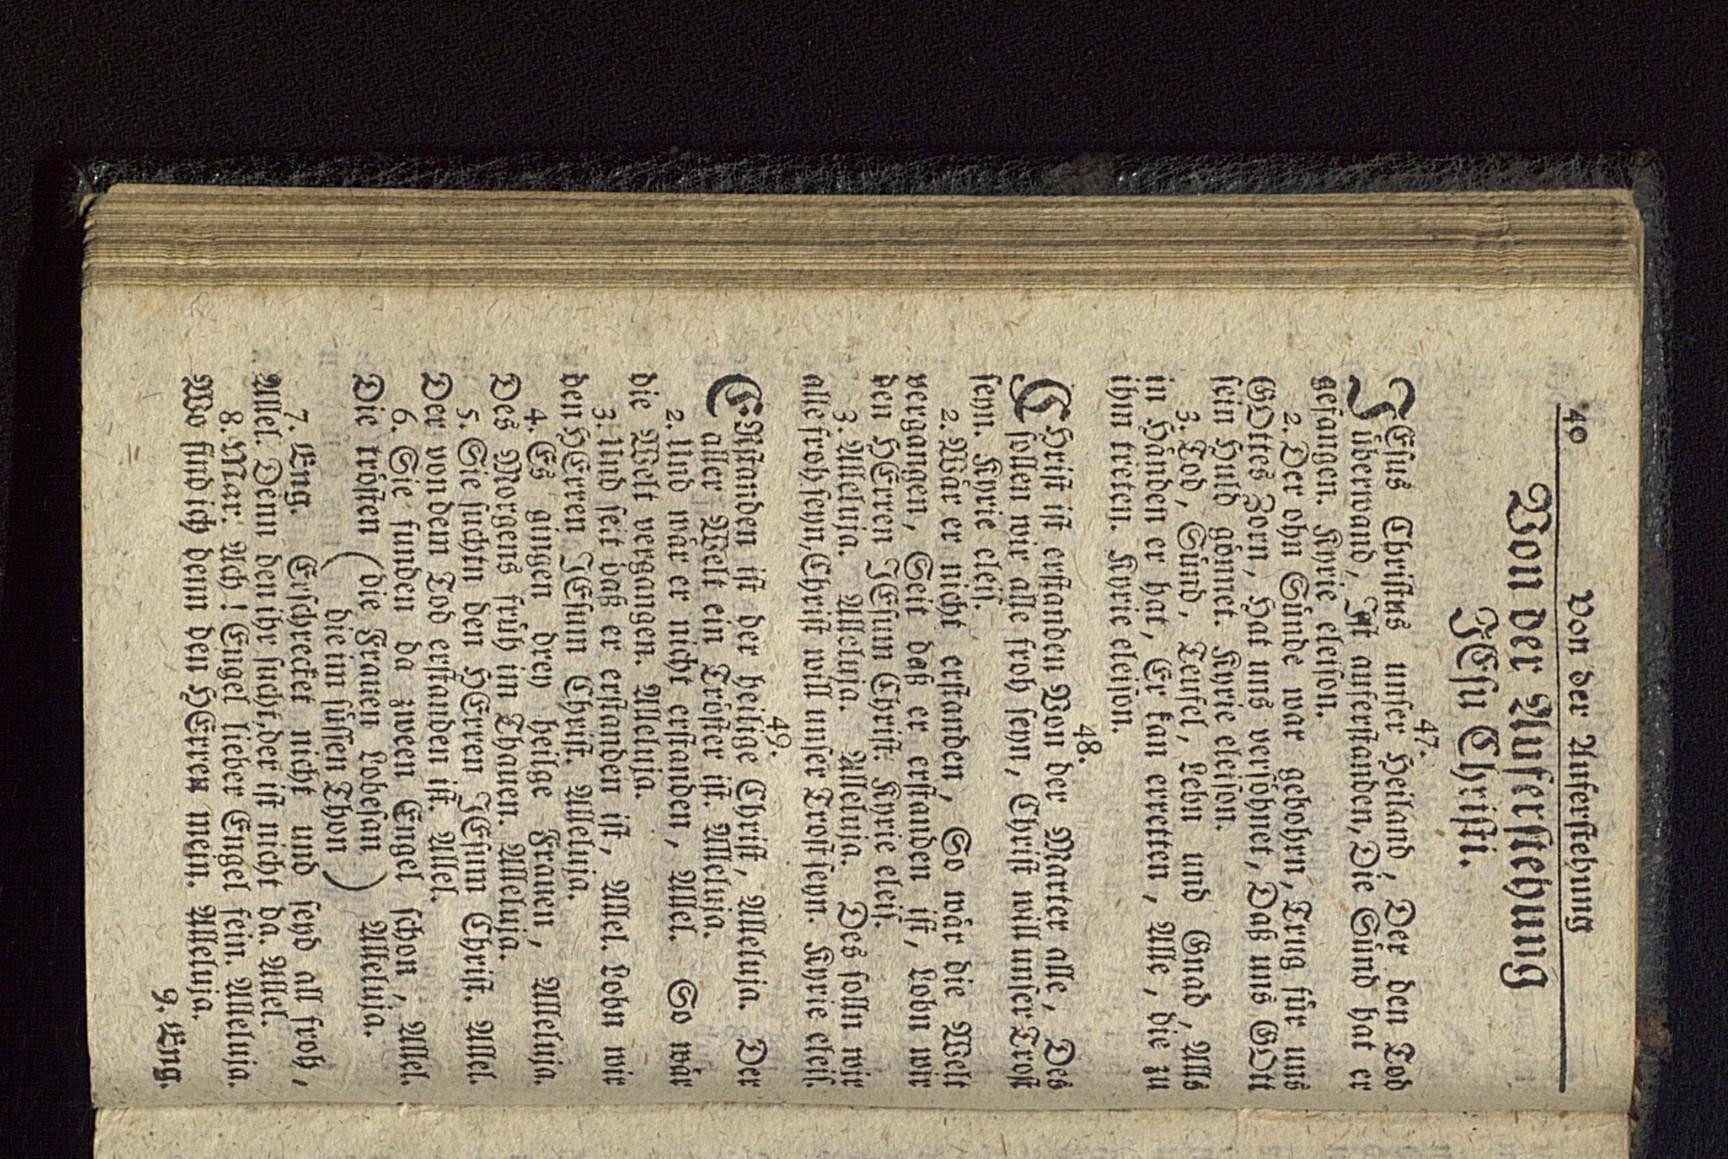 40 Von der Auferstehung
Von der Auferstehung
JEsu Christi.
47.
JEsus Christus unser Heiland, Der den Tod
überwand, Ist auferstanden, Die Sünd hat er
gefangen. Kyrie eleison.
2. Der ohn Sünde war gebohrn, Trug für uns
GOttes Zorn, Hat uns versöhnet, Daß uns GOtt
sein Huld gönnet. Kyrie eleison.
3. Tod, Sünd, Teufel, Lebn und Gnad, Alls
in Händen er hat, Er kan erretten, Alle, die zu
ihm treten. Kyrie eleison.
48.
CHrist ist erstanden Von der Marter alle, Des
sollen wir alle froh seyn, Christ will unser Trost
seyn. Kyrie eleis.
2. Wär er nicht erstanden, So wär die Welt
vergangen, Seit daß er erstanden ist, Lobn wir
den HErren JEsum Christ. Kyrie eleis.
3. Alleluja. Alleluja. Alleluja. Des solln wir
alle froh seyn, Christ will unser Trost seyn. Kyrie eleis.
49.
ERstanden ist der heilige Christ, Alleluja. Der
aller Welt ein Tröster ist. Alleluja.
2. Und wär er nicht erstanden, Allel. So wär
die Welt vergangen. Alleluja.
3. Und seit daß er erstanden ist, Allel. Lobn wir
den HErren JEsum Christ. Alleluja.
4. Es gingen drey heilge Frauen, Alleluja.
Des Morgens früh im Thauen. Alleluja.
5. Sie suchtn den HErren JEsum Christ. Allel.
Der von dem Tod erstanden ist. Allel.
6. Sie funden da zween Engel schon, Allel.
Die trösten (die Frauen lobesan) Alleluja.
( die im süssen Thon )
7. Eng. Erschrecket nicht und seyd all froh,
Allel. Denn den ihr sucht, der ist nicht da. Allel.
8. Mar. Ach! Engel lieber Engel fein. Alleluja.
Wo find ich denn den HErren mein. Alleluja.
9. Eng.